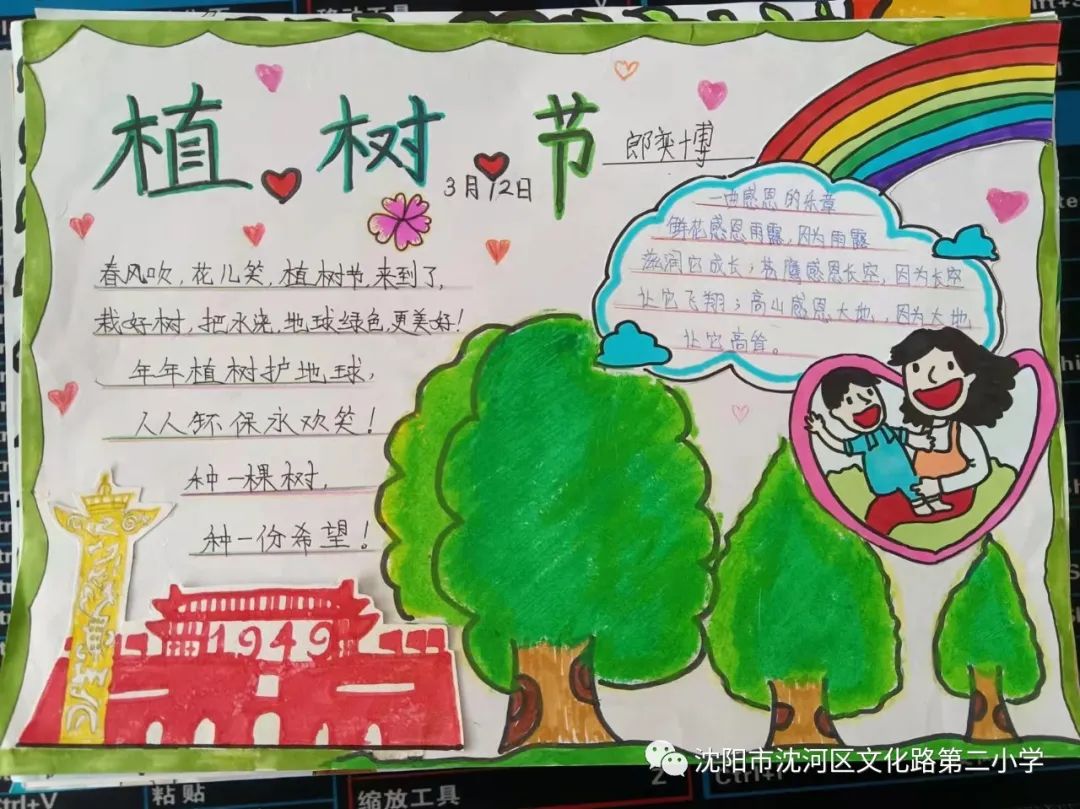 移动工具
植树节
郎奕博
3月12日
春风吹,花儿笑,植树节,来到了,
栽好树,把水浇,地球绿色,更美好!
年年植树护地球,
人人环保永欢笑!
种一棵树,
种一份希望!
一曲感恩的乐章
鲜花感恩雨露,因为雨露
滋润它成长;苍鹰感恩长空,因为长空
让它飞翔;高山感恩大地,因为大地
让它高耸。
1949
沈阳市沈河区文化路第二小学
Ctrl+V
粘贴
缩放工具
Z